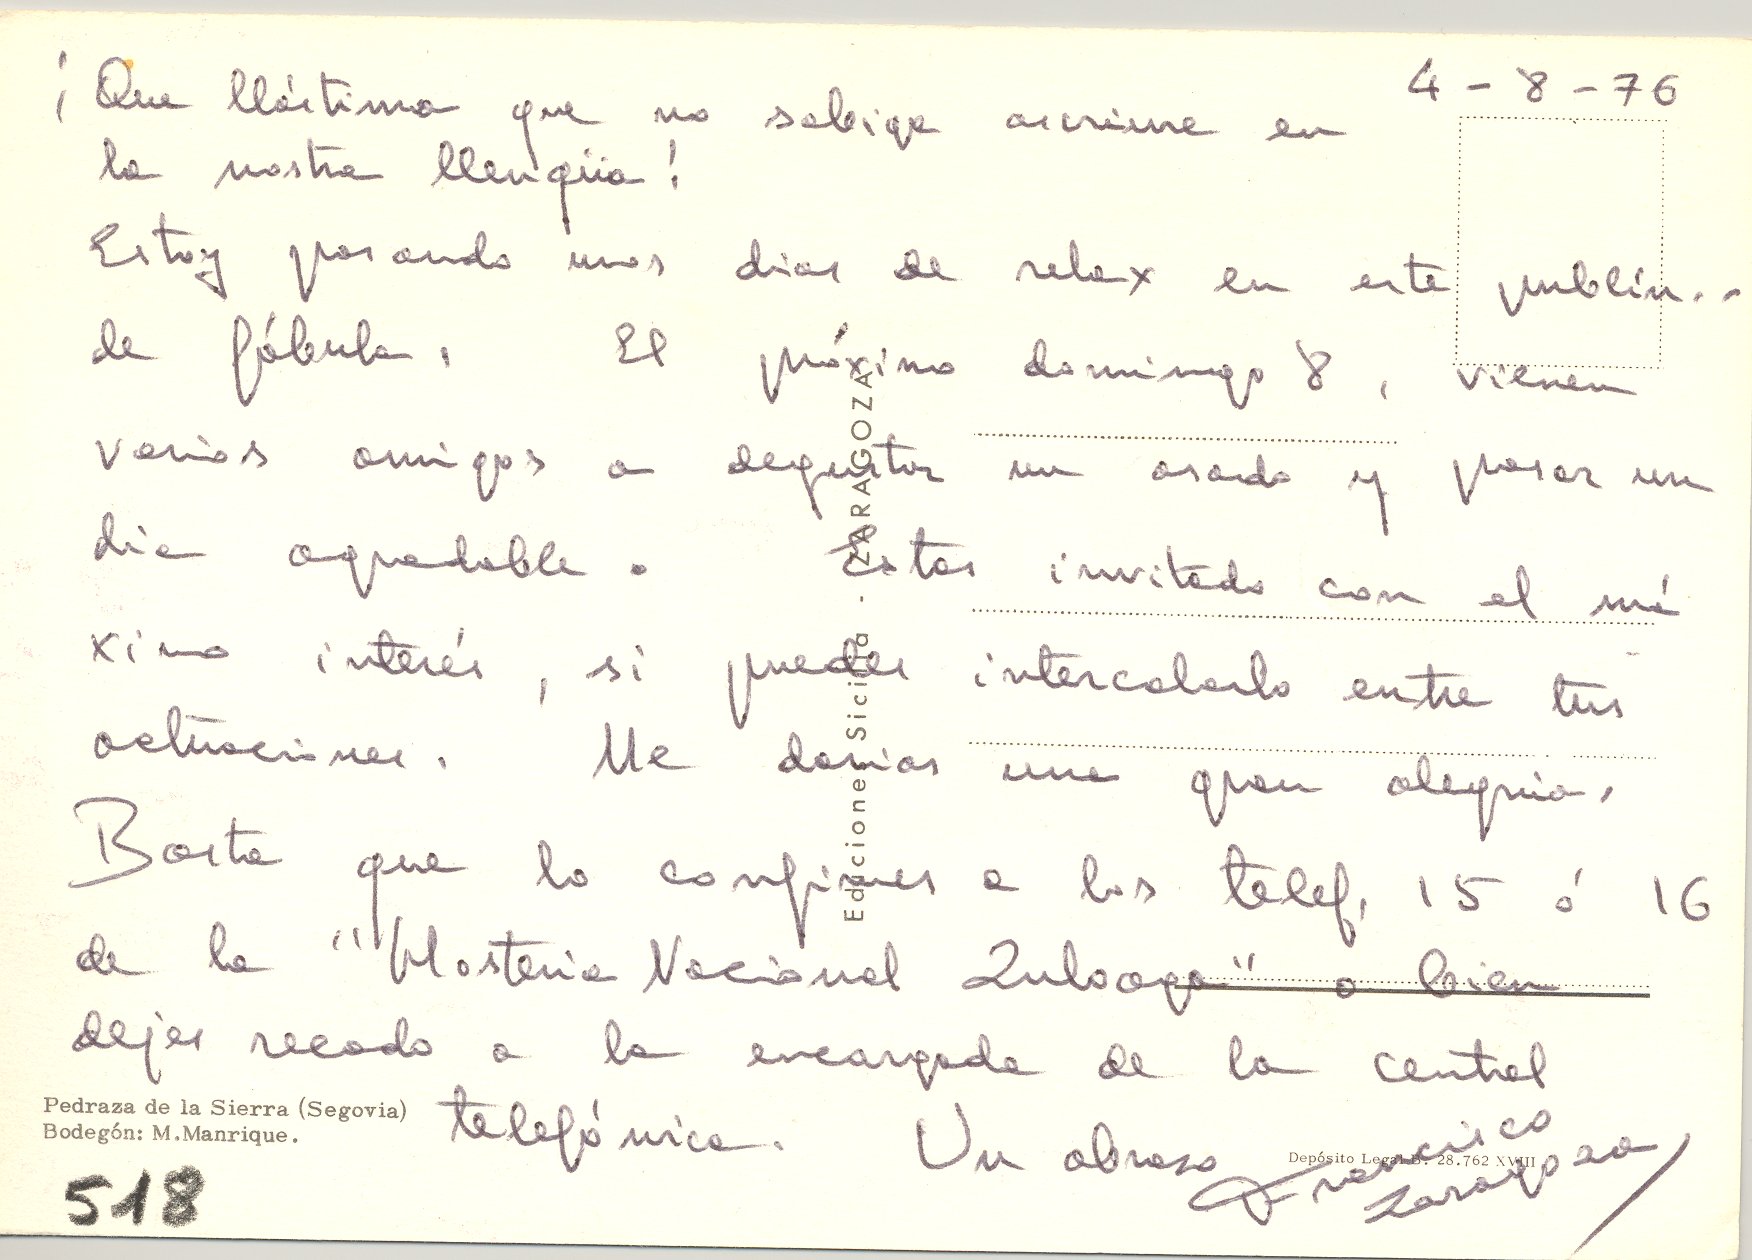 4 - 8 - 76
¡ Que llástima que no sabiga escriure en
la nostra llengüa!
Estoy pasando unos dias de relax en este
de fábula. El próximo domingo 8, vienen
varios amigos a degustar un asado y pasar un
dia agradable. Estas invitado con el má
ximo interés, si puedes intercalarlo entre tus
actuaciones. Me darias una gran alegria.
Basta que lo confirmes a los telef. 15 ó 16
de la "Hosteria Nacional Zuloaga" o bien
dejes recado a la encargada de la central
telefónica. Un abrazo
Francisco
Zaragozaa
Pedraza de la Sierra (Segovia)
Bodegón: M.Manrique.
Ediciones Sicilia - ZARAGOZA
Depósito Legal B. 28.762 XVIII
518